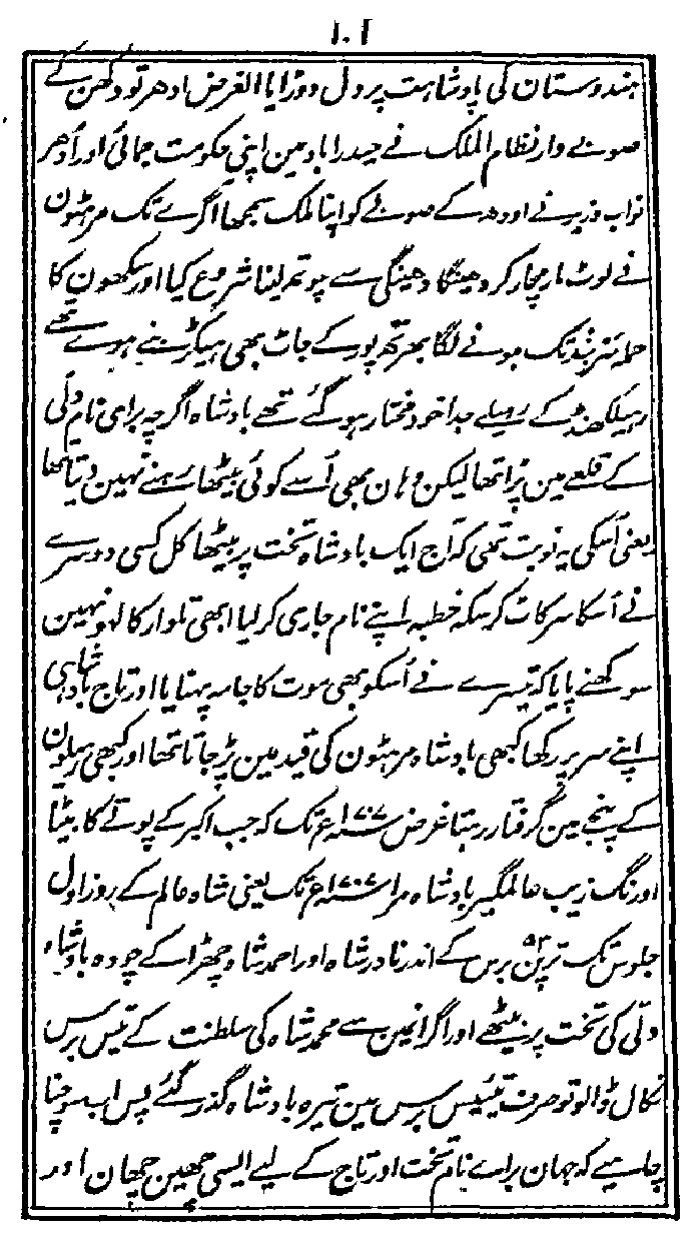 ۱۰۲
ہندوستان کی پادشاہت پر دل دوڑایا الغرض ادھر تو دکھن کے
صوبے دار نظام الملک نے حیدراباد مین اپنی حکومت جمائی اور اُدھر
نواب وزیر نے اودھ کے صوبے کو اپنا ملک سمجھا اگرے تک مرہٹون
نے لوٹ مار مچار کر دھینگا دھینگی سے چوتھ لینا شروع کیا اور سکھون کا
حملہ سَرہِند تک ہونے لگا بھرتھپور کے جاٹ بھی ہیکڑ بنے ہوے تھے
رہیلکھنڈ کے رہیلے جدا خود مختار ہو گئے تھے بادشاہ اگرچہ براے نام دلّی
کے قلعے مین پڑا تھا لیکن وہان بھی اُسے کوئی بیٹھا رہنے نہین دیتا تھا
یعنی اُسکی یہ نوبت تھی کہ آج ایک بادشاہ تخت پر بیٹھا کل کسی دوسرے
نے اُسکا سر کاٹ کر سکہ خطبہ اپنے نام جاری کر لیا ابھی تلوار کا لہو نہین
سوکھنے پایا کہ تیسرے نے اُسکو بھی موت کا جامہ پہنایا اور تاج بادشاہی
اپنے سر پر رکھا کبھی بادشاہ مرہٹون کی قید مین پڑجاتا تھا اور کبھی رہیلون
کے پنجے مین گرفتار رہتا غرض ۱۷۰۷ع تک کہ جب اکبر کے پوتے کا بیٹا
اورنگ زیب عالمگیر بادشاہ مرا تک یعنی شاہ عالم کے روز اول
جلوس تک ترپن ۵۳ برس کے اندر نادرشاہ اور احمد شاہ چھڑا کے چودہ بادشاہ
دلّی کی تخت پر بیٹھے اور اگر انمین سے محمد شاہ کی سلطنت کے تیس برس
نکال ڈالو تو صرف تیئیس برس مین تیرہ بادشاہ گذر گئے پس اب سوچنا
چاہیے کہ جہان براے نام تخت اور تاج کے لیے ایسی چھین چھان اور